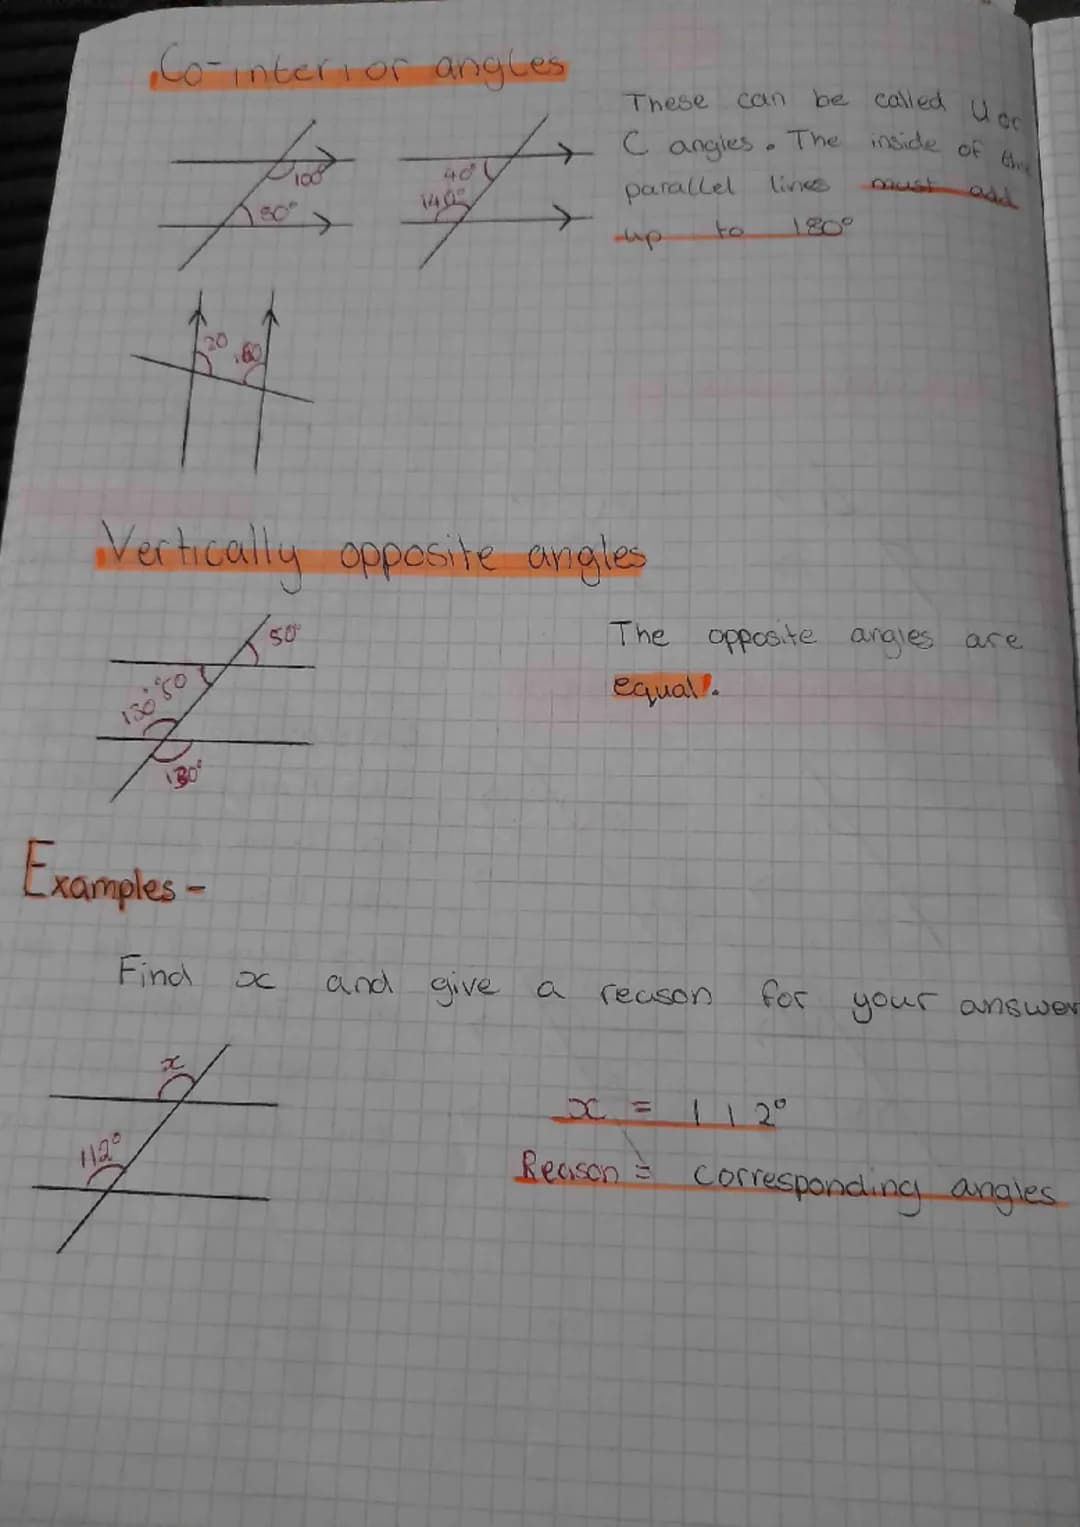 Co-interior angles
These can be called U or
C angles. The inside of the
parallel lines must add
up to 180°
100°
80°
40°
140°
20
160
Vertically opposite angles
50°
50
130°
130°
The opposite angles are
equal!.
Examples -
Find x and give a reason for your answer
x
112°
x = 112°
Reason = corresponding angles